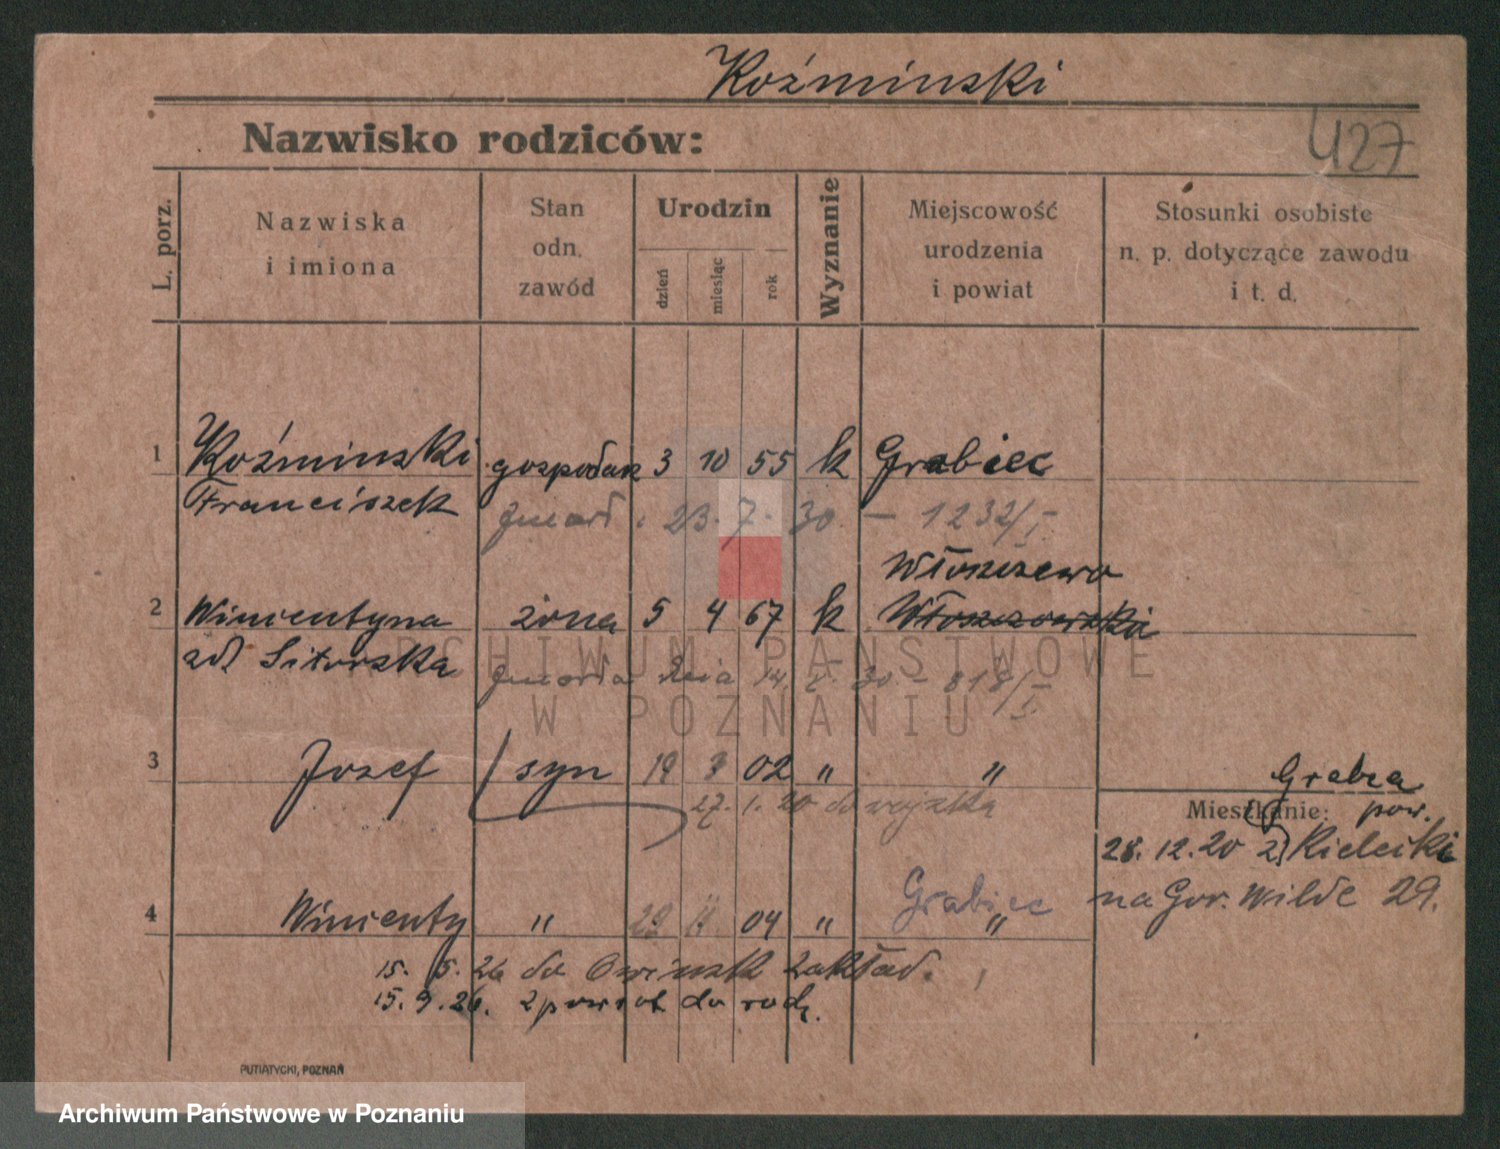 Koźminski
Nazwisko rodziców:
427
L. porz.
Nazwiska
i imiona
Stan
odn.
zawód
Urodzin
dzień
miesiąc
rok
Wyznanie
Miejscowość
urodzenia
i powiat
Stosunki osobiste
n. p. dotyczące zawodu
i t. d.
1 Koźminski gospodarz 3 10 55 k Grabiec
Franciszek
zmarł 23. 7. 30. – 1232/I
Włoszczewo
2 Wincentyna żona 5 4 67 k Włoszczowska
zd Sitorska
zmarła dnia 14. 30 – 818/I
3 Jozef syn 19 3 02 " "
27. 1. 20 do wojska
Grabza
Mieszkanie: pow.
28. 12. 20 z Kielecki
na Gor. Wilde 29.
4 Wincenty " 29 04 " Grabiec "
15. 5. 26 do Owińsk zakład.
15. 9. 26. z powrot do rodz.
PUTIATYCKI, POZNAŃ
ARCHIWUM PAŃSTWOWE
W POZNANIU
Archiwum Państwowe w Poznaniu